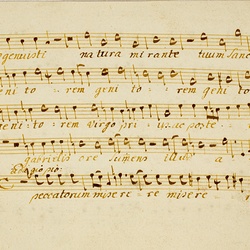 genuisti natura mirante tuum sanc
eni to rem geni to rem geni to
eni to rem virgo pri us ac poste
gabrielis ore sumens illud a
peccatorum misere re misere